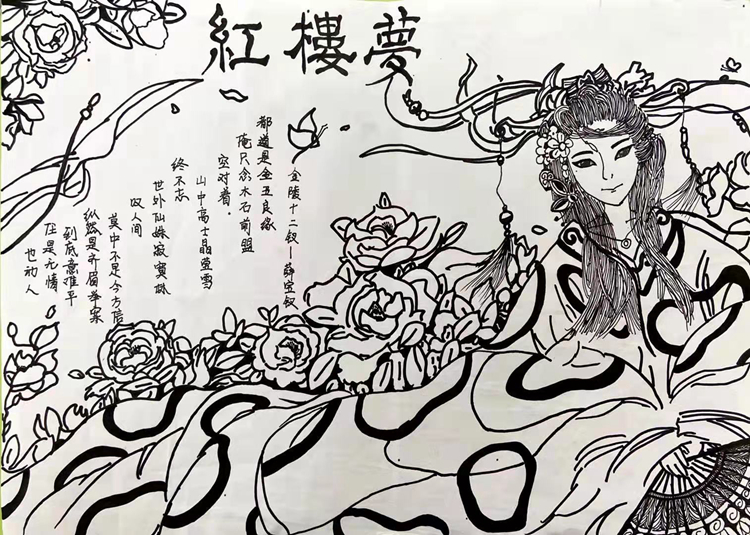 紅樓夢
金陵十二钗—薛宝钗
都道是金玉良缘
俺只念木石前盟
空对着,
山中高士晶莹雪
终不忘
世外仙姝寂寞林
叹人间
美中不足今方信
纵然是齐眉举案
到底意难平
任是无情
也动人